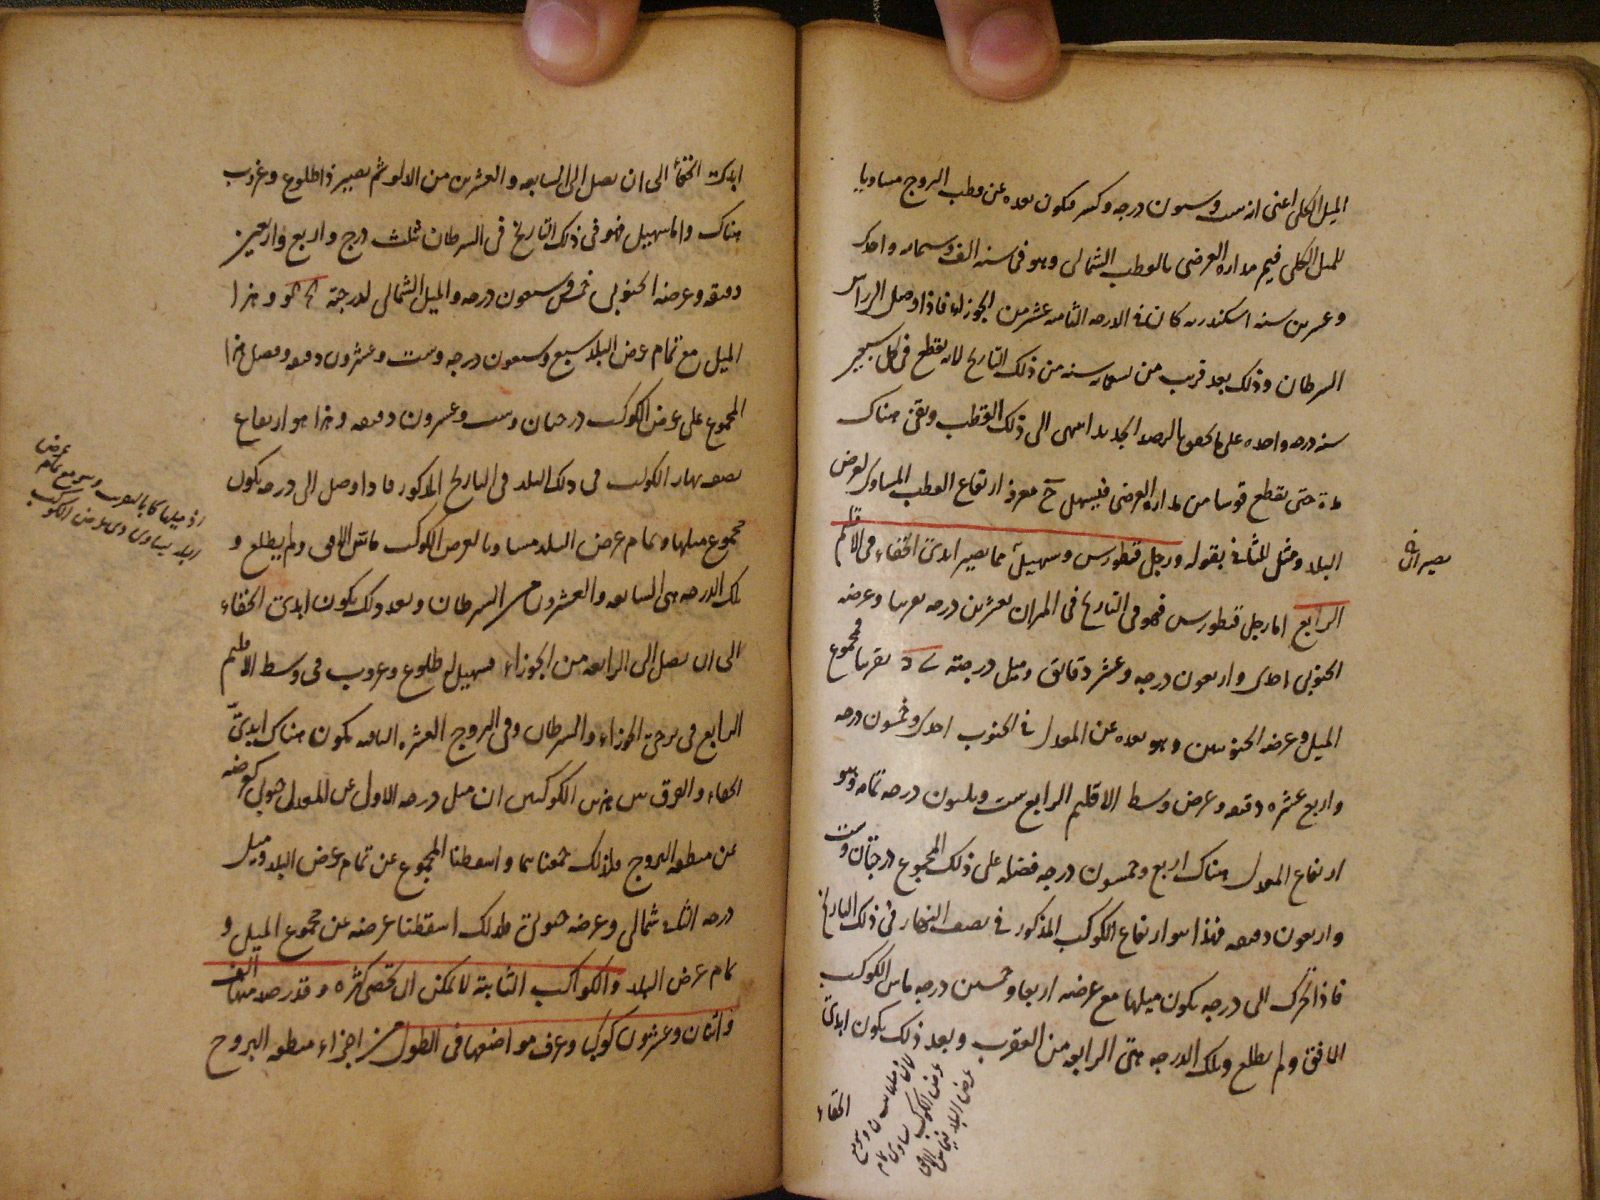 الميل الكلى اعنى از ست وستون درجه وكسر فيكون بعده عن قطب البروج مساويا
للميل الكلى فيمر مداره العرضى بالقطب الشمالى وهو فى سنه الف وستمايه واحدى
وعشرين سنه اسكندريه كان فى الدرجه الثامنه عشر من الجوزاء فاذا وصل الى راس
السرطان وذلك بعد قريب من سنه من ذلك التاريخ لانه يقطع فى كل سبعين
سنه درجه واحده على ما تحقق بالرصد الجديد انتهى الى ذلك القطب وبقى هناك
مدة حتى يقطع قوسا من مداره العرضى فيسهل ح معرفة ارتفاع القطب المساوى لعرض
البلد ومثل للثانى بقوله ورجل قنطورس وسهيل مما يصير ابدى الخفاء فى الاقليم
الرابع اما رجل قنطورس فهو فى التاريخ فى الميزان بعشرين درجه تقريبا وعرضه
الجنوبى احدى واربعون درجه وعشر دقائق وميل درجته ى د تقريبا فمجموع
الميل وعرضه الجنوبيين وهو بعده عن المعدل فى الجنوب احدى وخمسون درجه
واربع عشره دقيقه وعرض وسط الاقليم الرابع ست وثلثون درجه تمامه وهو
ارتفاع المعدل هناك اربع وخمسون درجه فضله على ذلك المجموع درجتان وست
واربعون دقيقه فهذا هو ارتفاع الكوكب المذكور فى نصف النهار فى ذلك التاريخ
فاذا تحرك الى درجه يكون ميلها مع عرضه اربعا وخمسين درجه ماس الكوكب
الافق ولم يطلع وتلك الدرجه هى الرابعه من العقرب وبعد ذلك يكون ابدى
الخفاء
يصير ابدى
عرض الكوكب يساوى تمام
عرض البلد فيماس الافق
ابدى الخفاء الى ان يصل الى السابعه والعشرين من الدلو ثم يصير ذا طلوع وغروب
هناك واما سهيل فهو فى ذلك التاريخ فى السرطان ثلث درج واربع واربعين
دقيقه وعرضه الجنوبى خمس وسبعون درجه والميل الشمالى لدرجته وهذا
الميل مع تمام عرض البلد سبع وسبعون درجه وست وعشرون دقيقه وفضل هذا
المجموع على عرض الكوكب درجتان وست وعشرون دقيقه وهذا هو ارتفاع
نصف نهار الكوكب فى ذلك البلد فى التاريخ المذكور فاذا وصل الى درجه يكون
مجموع ميلها وتمام عرض البلد مساويا لعرض الكوكب ماس الافق ولم يطلع و
تلك الدرجه هى السابعه والعشرون من السرطان وبعد ذلك يكون ابدى الخفاء
الى ان يصل الى الرابعه من الجوزاء فسهيل له طلوع وغروب فى وسط الاقليم
الرابع فى برجى الجوزاء والسرطان وفى البروج العشره الباقيه يكون هناك ابدى
الخفاء والفرق بين هذين الكوكبين ان ميل درجه الاول عن المعدل جنوبى كعرضه
عن منطقه البروج فلذلك جمعناهما واسقطنا المجموع عن تمام عرض البلد وميل
درجه الثانى شمالى وعرضه جنوبى فلذلك اسقطنا عرضه عن مجموع الميل و
تمام عرض البلد والكواكب الثابتة لا يمكن ان تحصى كثره وقد رصد منها الف
واثنان وعشرون كوكبا وعرف مواضعها فى الطول من اجزاء منطقه البروج
البلد يساوى عرض الكوكب